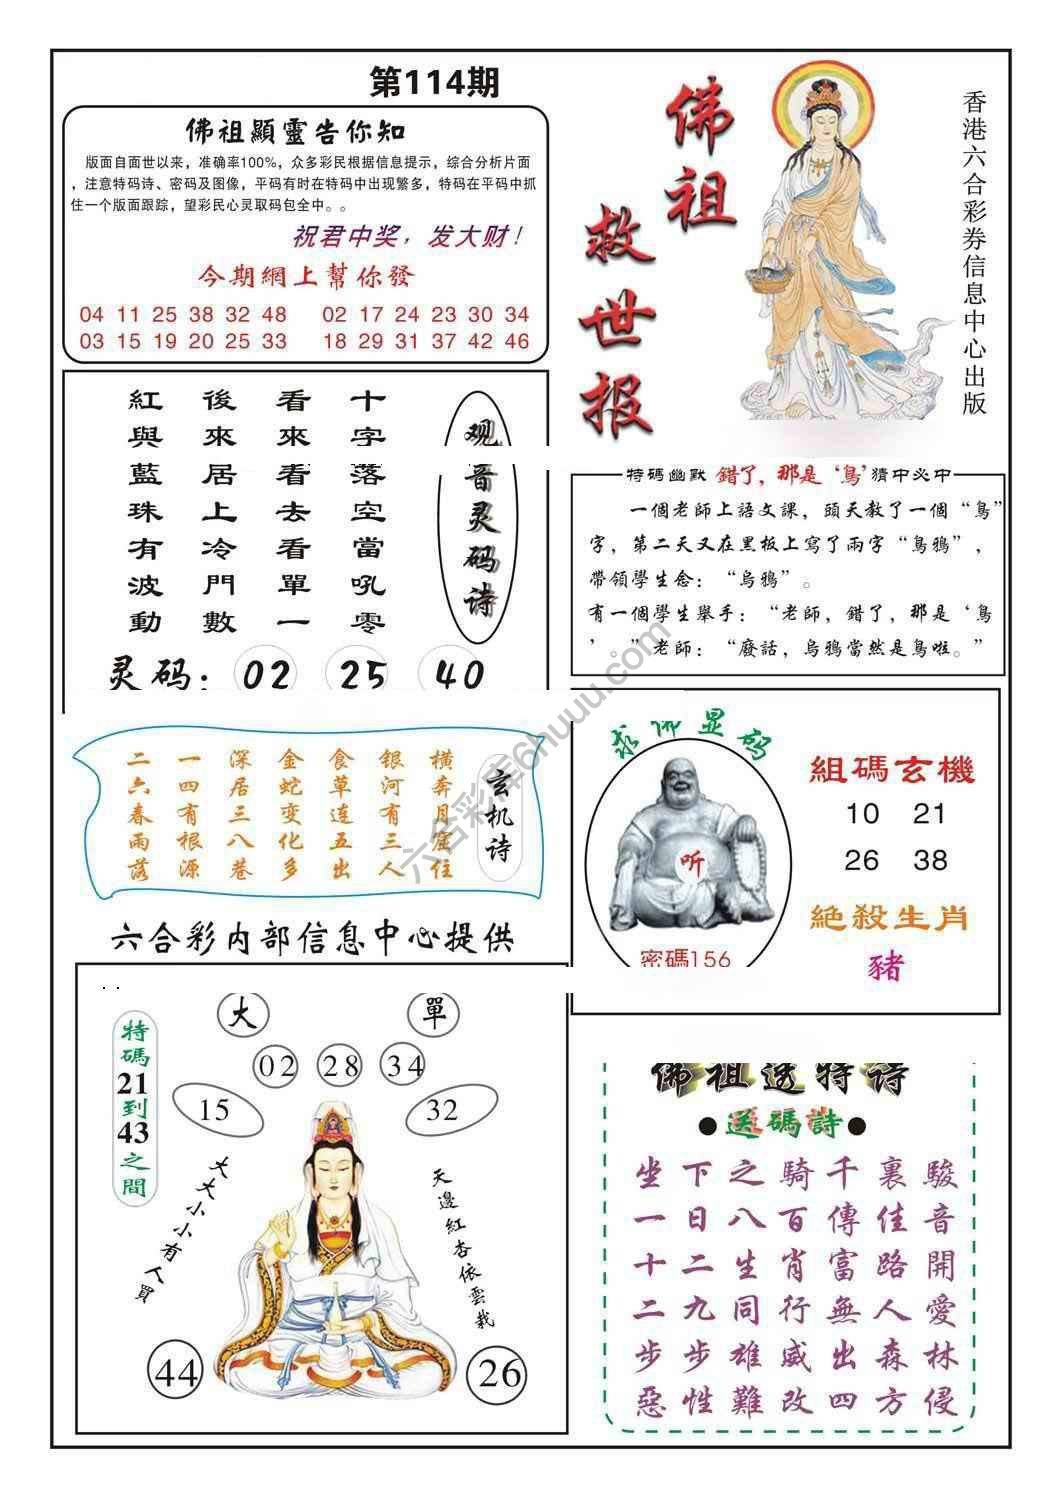 第114期
佛祖顯靈告你知
版面自面世以来，准确率100%，众多彩民根据信息提示，综合分析片面
，注意特码诗、密码及图像，平码有时在特码中出现繁多，特码在平码中抓
住一个版面跟踪，望彩民心灵取码包全中。。
祝君中奖，发大财！
今期網上幫你發
04 11 25 38 32 48 02 17 24 23 30 34
03 15 19 20 25 33 18 29 31 37 42 46
佛祖
救世报
香港六合彩券信息中心出版
观音灵码诗
十字落空當吼零
看來看去看單一
後來居上冷門數
紅與藍珠有波動
灵码：02 25 40
特碼幽默 錯了，那是‘鳥’猜中必中
一個老師上語文課，頭天教了一個“鳥”
字，第二天又在黑板上寫了兩字“烏鴉”，
帶領學生念：“烏鴉”。
有一個學生舉手：“老師，錯了，那是‘鳥
’。”老師：“廢話，烏鴉當然是鳥啦。”
玄机诗
横奔月窟住
银河有三人
食草连五出
金蛇变化多
深居三八巷
一四有根源
二六春雨落
求佛显码
听
密碼156
組碼玄機
10 21
26 38
絕殺生肖
豬
六合彩内部信息中心提供
特碼21到43之間
大 單
02 28 34
15 32
大大小小有人買
天邊紅杏依雲栽
44 26
佛祖透特诗
●送碼詩●
坐下之騎千裏駿
一日八百傳佳音
十二生肖富路開
二九同行無人愛
步步雄威出森林
惡性難改四方侵
六合彩库6huuu.com